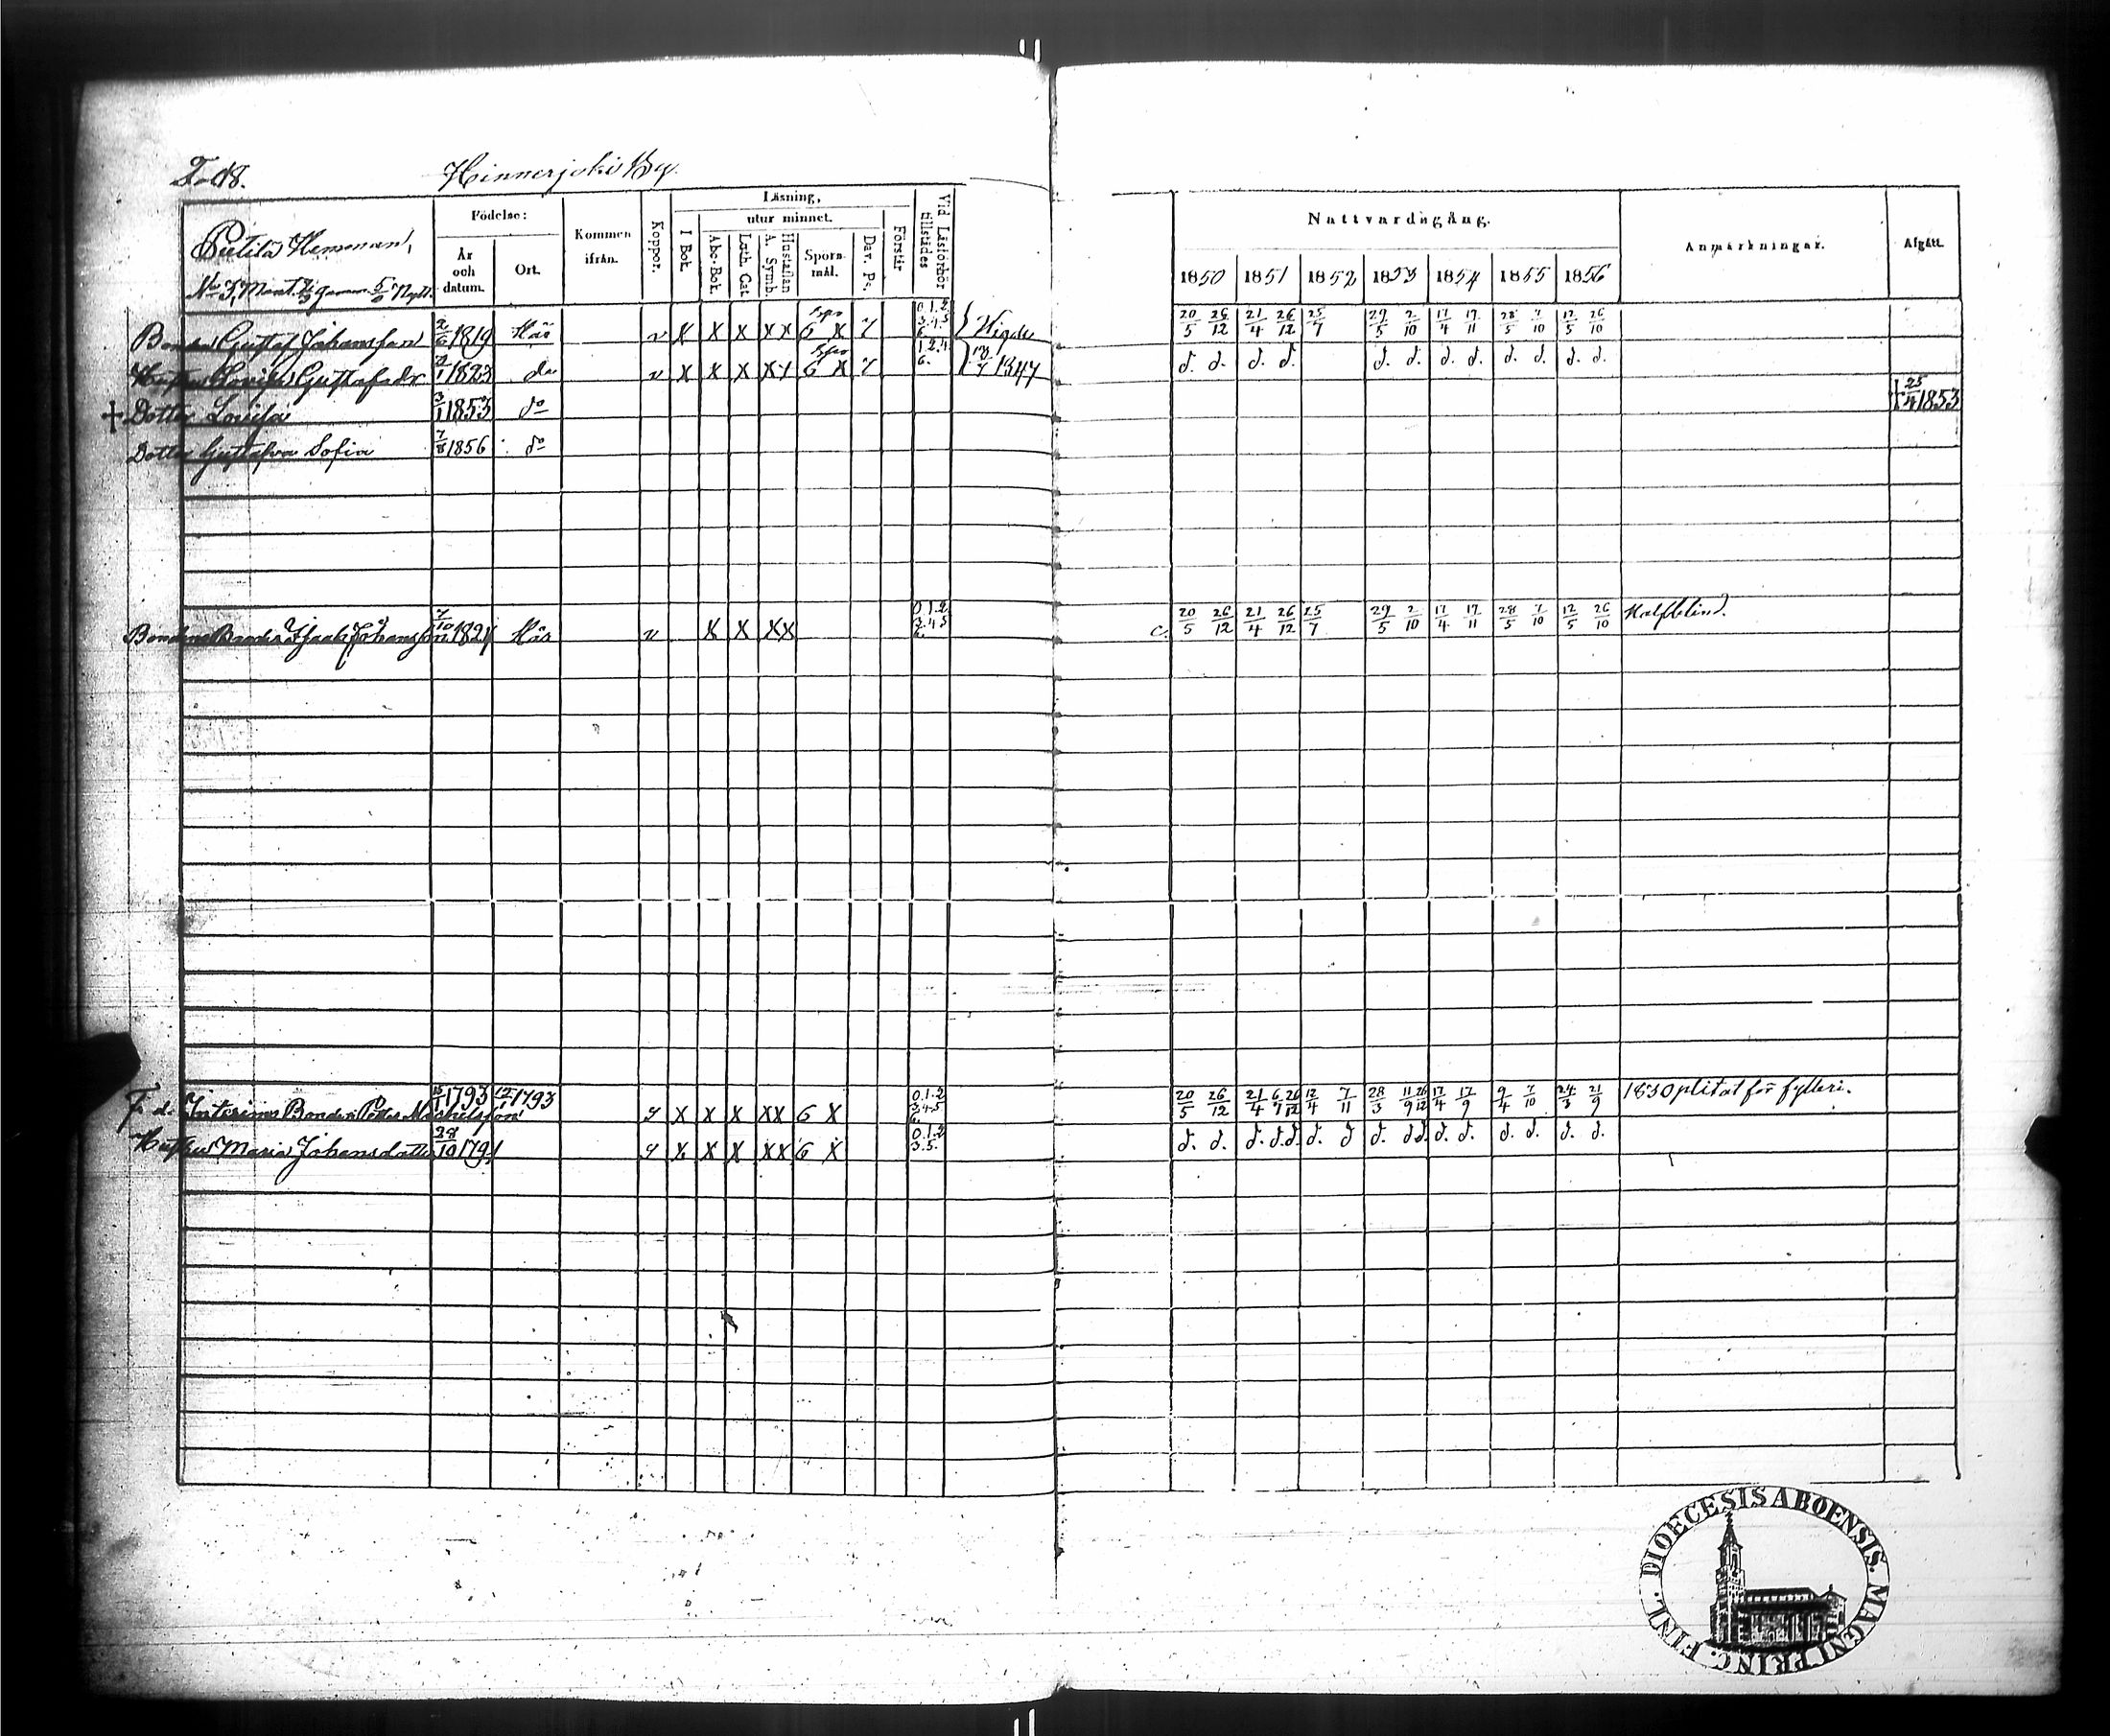 Hinnerjoki By.
Födelse:
Läsning,
utur minnet.
Hemman,
År och datum.
Ort.
Kommen ifrån.
Koppor.
I Bok.
Abc-Bok.
Luth. Cat.
Hustaflan A. Symb.
Sporsmål.
Dav. Ps.
Förstår
Vid Läsförhör tillstädes
Nattvardsgång.
1850 1851 1852 1853 1854 1855 1856
Anmärkningar.
Afgått.
Bonden Gustaf Johansson 2/6 1819 Här v X X X X X 6 X 0.1.2. 3.4.5 6. Vigde 20/5 26/12 21/4 26/12 25/7 29/5 2/10 17/4 17/11 28/5 7/10 12/5 26/10
Hustru Gustafsdr 1823 do v X X X X X 6 X 1.2.4. 6. 1847 d. d. d. d. d. d. d. d. d. d. d. d.
† Dotter Lovisa 3/1 1853 do † 25/4 1853
Dotter Gustafva Sofia 7/8 1856 do
Bondens Broder Isaak Johansson 7/10 1821 Här v X X X X 0.1.2. 3.4.5 6. c. 20/5 26/12 21/4 26/12 25/7 29/5 2/10 17/4 17/11 28/5 7/10 12/5 26/10 Halfblind.
F. d. Interims Bonden 1793 1793 X X X X X 6 X 0.1.2 3.4.5 20/5 26/12 21/4 6/7 26/12 12/4 7/11 28/3 11/9 26/12 17/4 17/9 9/4 7/10 24/3 21/9 1830 plitat för fylleri.
Hustru Maria Johansdotter 28/10 1791 X X X X X 6 X 0.1.2 3.5. d. d. d. d. d. d. d d. d d. d. d. d. d. d. d.
DIOECESIS ABOENSIS. MAGNI PRINC. FINL.